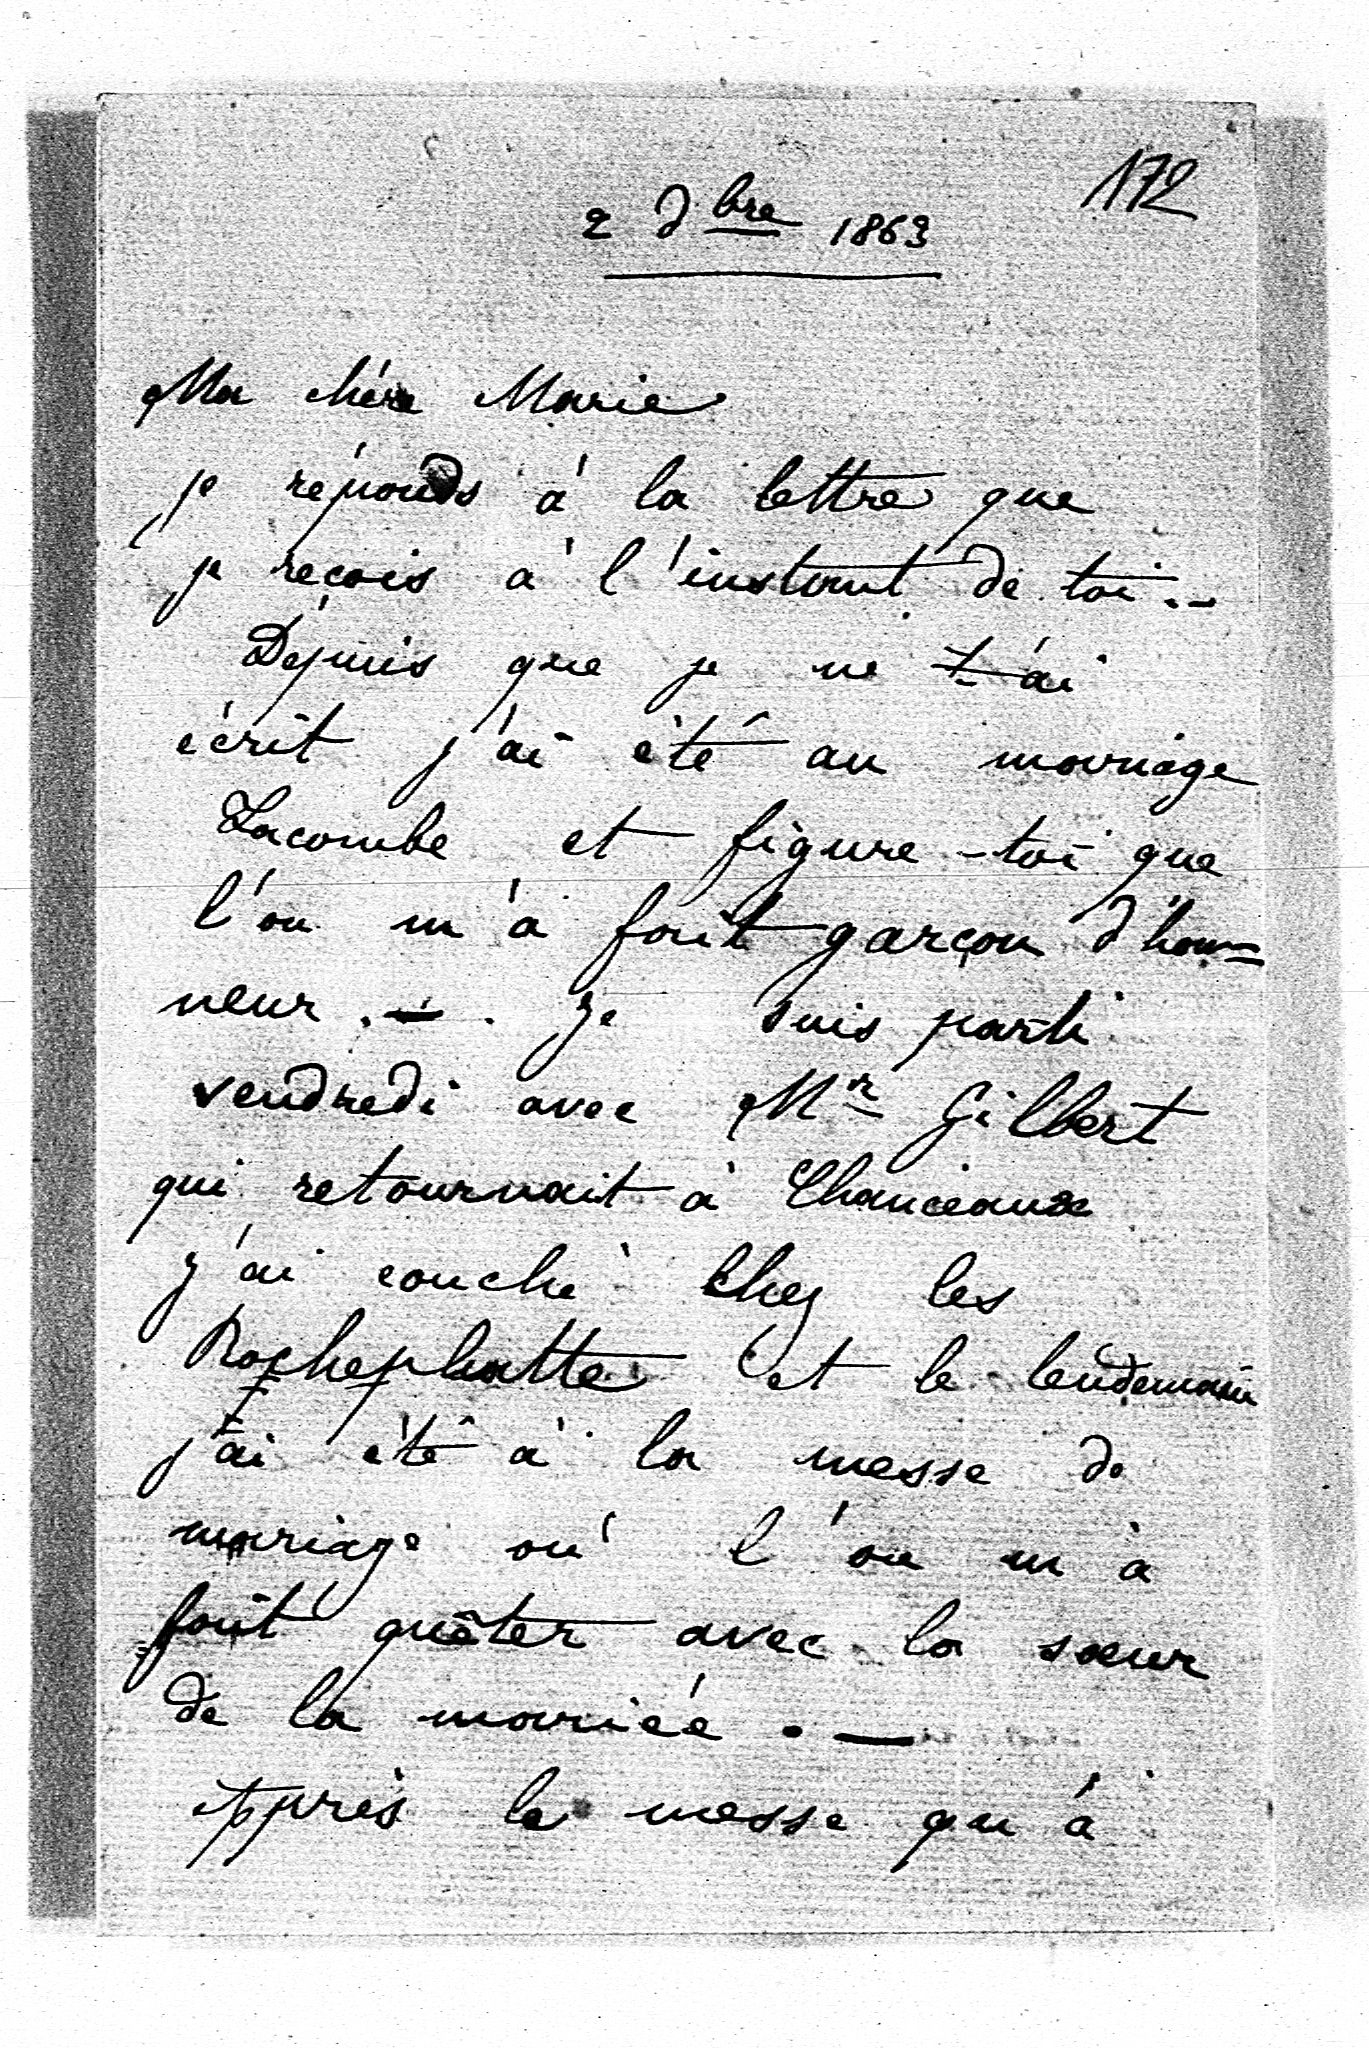 172
2 Dbre 1863
Ma chère Marie
je réponds à la lettre que
je reçois à l'instant de toi.-
Depuis que je ne t'ai
écrit j'ai été au mariage
Lacombe et figure-toi que
l'on m'a fait garçon d'hon-
neur. - . Je suis parti
vendredi avec Mr Gilbert
qui retournait à Chanceaux
j'ai couché chez les
Rocheplatte et le lendemain
j'ai été à la messe de
mariage où l'on m'a
fait quêter avec la sœur
de la mariée. —
Après la messe qu'a